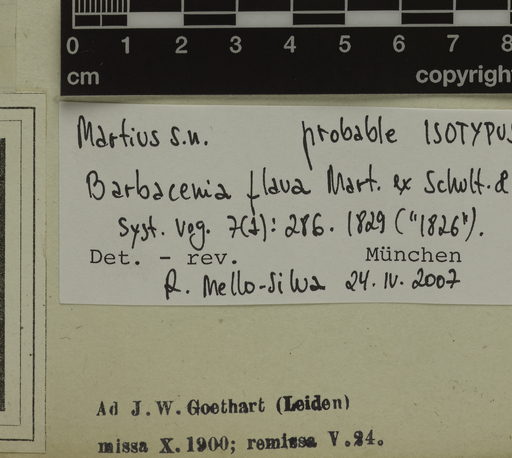 0 1 2 3 4 5 6 7 8
cm copyright
Martius s.n. probable ISOTYPUS
Barbacenia flava Mart. ex Schult. &
Syst. Veg. 7(1): 286. 1829 ("1826").
Det. - rev. München
R. Mello-Silva 24.IV.2007
Ad J. W. Goethart (Leiden)
missa X. 1900; remissa V. 24.